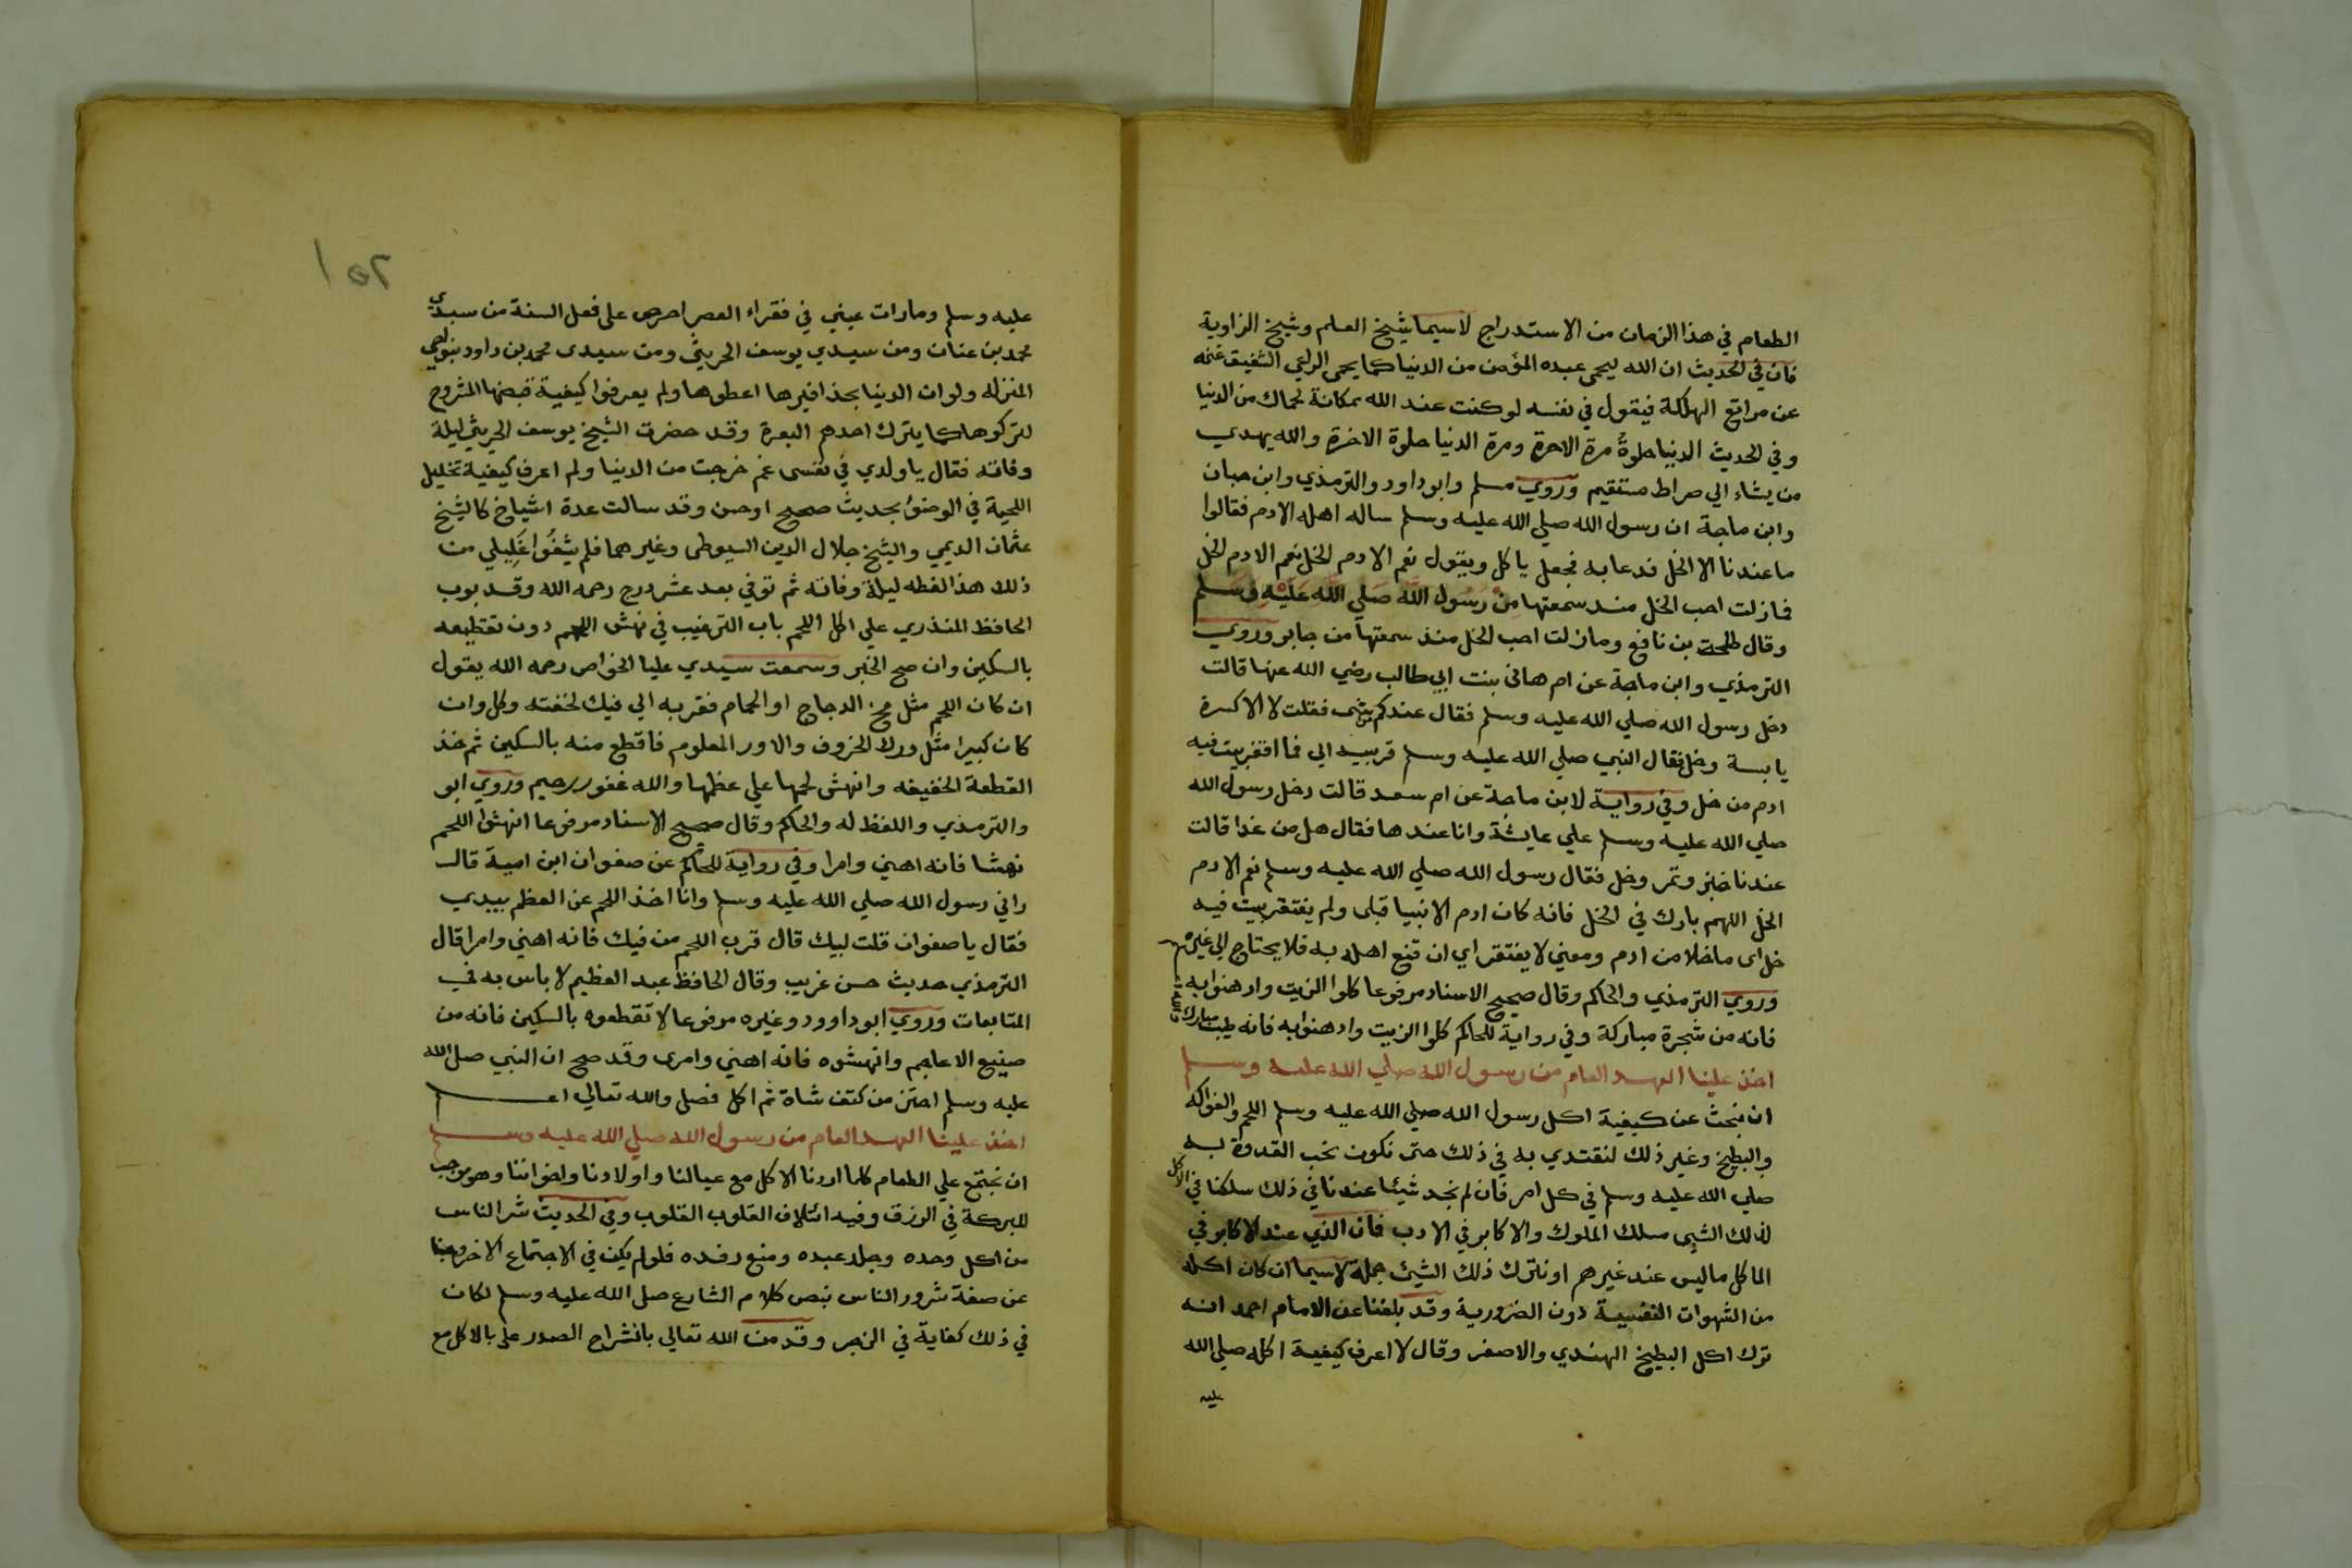 الطعام في هذا الزمان من الاستدراج لاسيما شيخ العلم وشيخ الزاوية
فان في الحديث ان الله ليحمي عبده المؤمن من الدنيا كما يحمى الراعي الشفيق غنمه
عن مراتع الهلكة فيقول في نفسه لو كنت عند الله بمكانة لحماك من الدنيا
وفي الحديث الدنيا حلوةُ مرة الاخرة ومرة الدنيا حلوة الاخرة والله يهدي
من يشاء الي صراط مستقيم وروي مسلم وابو داود والترمذي وابن حبان
وابن ماجة ان رسول الله صلي الله عليه وسلم ساله اهله الادم فقالوا
ما عندنا الا الخل فدعا به فجعل ياكل ويقول نعم الادم الخل نعم الادم الخل
فما زلت احب الخل منذ سمعتها من رسول الله صلي الله عليه وسلم
وقال طلحة بن نافع وما زلت احب الخل منذ سمعتها من جابر وروي
الترمذي وابن ماجة عن ام هانى بنت ابي طالب رضي الله عنها قالت
دخل رسول الله صلي الله عليه وسلم فقال عندكم شى فقلت لا الا كسرة
يابسة وخل فقال النبي صلي الله عليه وسلم قربيه الي فما اقفر بيت فيه
ادم من خل وفي رواية لابن ماجة عن ام سعد قالت دخل رسول الله
صلي الله عليه وسلم علي عايشة وانا عندها فقال هل من غدا قالت
عندنا خبز وتمر وخل فقال رسول الله صلي الله عليه وسلم نعم الادم
الخل اللهم بارك في الخل فانه كان ادم الانبيا قبلى ولم يفتقر بيت فيه
خل اى ما خلا من ادم ومعني لا يفتقر اي ان قنع اهله به فلا يحتاج الي غيره
وروي الترمذي والحاكم وقال صحيح الاسناد مرفوعا كلوا الزيت وادهنوا به
فانه من شجرة مباركة وفي رواية للحاكم كلوا الزيت وادهنوا به فانه طيب مبارك
اخذ علينا العهد العام من رسول الله صلي الله عليه وسلم
ان نبحث عن كيفية اكل رسول الله صلي الله عليه وسلم اللحم والفواكه
والبطيخ وغير ذلك لنقتدي به في ذلك حتى نكون تحب القدوة به
صلي الله عليه وسلم في كل امر فان لم نجد شيئا عندنا في ذلك سلكنا في الاكل
لذلك الشيى مسلك الملوك والاكابر في الادب فان الذي عند الاكابر في
الماكل ما ليس عند غيرهم او نترك ذلك الشيئ جملة لاسيما ان كان اكله
من الشهوات النفسية دون الضرورية وقد بلغنا عن الامام احمد انه
ترك اكل البطيخ الهندي والاصفر وقال لا اعرف كيفية اكله صلي الله
عليه
١٥٢
عليه وسلم وما رات عيني في فقراء العصر احرص على فعل السنة من سيدي
محمد بن عنان ومن سيدي يوسف الحريثي ومن سيدى محمد بن داود بنواحي
المنزله ولو ان الدنيا بحذافيرها اعطوها ولم يعرفوا كيفية قبضها المشروع
لتركوها كما يترك احدهم البعرة وقد حضرت الشيخ يوسف الحريثي ليلة
وفاته فقال يا ولدي في نفسى غم خرجت من الدنيا ولم اعرف كيفية تخليل
اللحية في الوضؤ بحديث صحيح او حسن وقد سالت عدة اشياخ كالشيخ
عثمان الديمي والشيخ جلال الدين السيوطى وغيرهما فلم يشفُوا غَلِيلي من
ذلك هذا لفظه ليلة وفاته ثم توفي بعد عشر درج رحمه الله وقد بوب
الحافظ المنذري علي اكل اللحم باب الترغيب في نهش اللحم دون تقطيعه
بالسكين وان صح الخبر وسمعت سيدي عليا الخواص رحمه الله يقول
ان كان اللحم مثل الدجاج او الحمام فقربه الي فيك لخفته وكل وان
كان كبيرا مثل ورك الخروف والاور المعلوم فاقطع منه بالسكين ثم خذ
القطعة الخفيفه وانهش لحمها علي عظمها والله غفور رحيم وروي ابو
والترمذي واللفظ له والحاكم وقال صحيح الاسناد مرفوعا انهشوا اللحم
نهشا فانه اهني وامرا وفي رواية للحاكم عن صفوان ابن امية قال
راني رسول الله صلي الله عليه وسلم وانا اخذ اللحم عن العظم بيدي
فقال يا صفوان قلت لبيك قال قرب اللحم من فيك فانه اهني وامرا قال
الترمذي حديث حسن غريب وقال الحافظ عبد العظيم لا باس به في
المتابعات وروي ابو داوود وغيره مرفوعا لا تقطعوه بالسكين فانه من
صنيع الاعاجم وانهشوه فانه اهني وامرى وقد صح ان النبي صلي الله
عليه وسلم احتز من كتف شاة ثم اكل فصلى والله تعالي اعلم
اخذ علينا العهد العام من رسول الله صلي الله عليه وسلم
ان نجتمع علي الطعام كلما اردنا الاكل مع عيالنا واولادنا واخواننا وهو موجب
للبركة في الرزق وفيه ائتلاف القلوب القلوب وفي الحديث شر الناس
من اكل وحده وجلد عبده ومنع رفده فلو لم يكن في الاجتماع الا خروجنا
عن صفة شرور الناس بنص كلام الشارع صلي الله عليه وسلم لكان
في ذلك كفاية في الزجر وقد من الله تعالي بانشراح الصدر على بالاكل مع